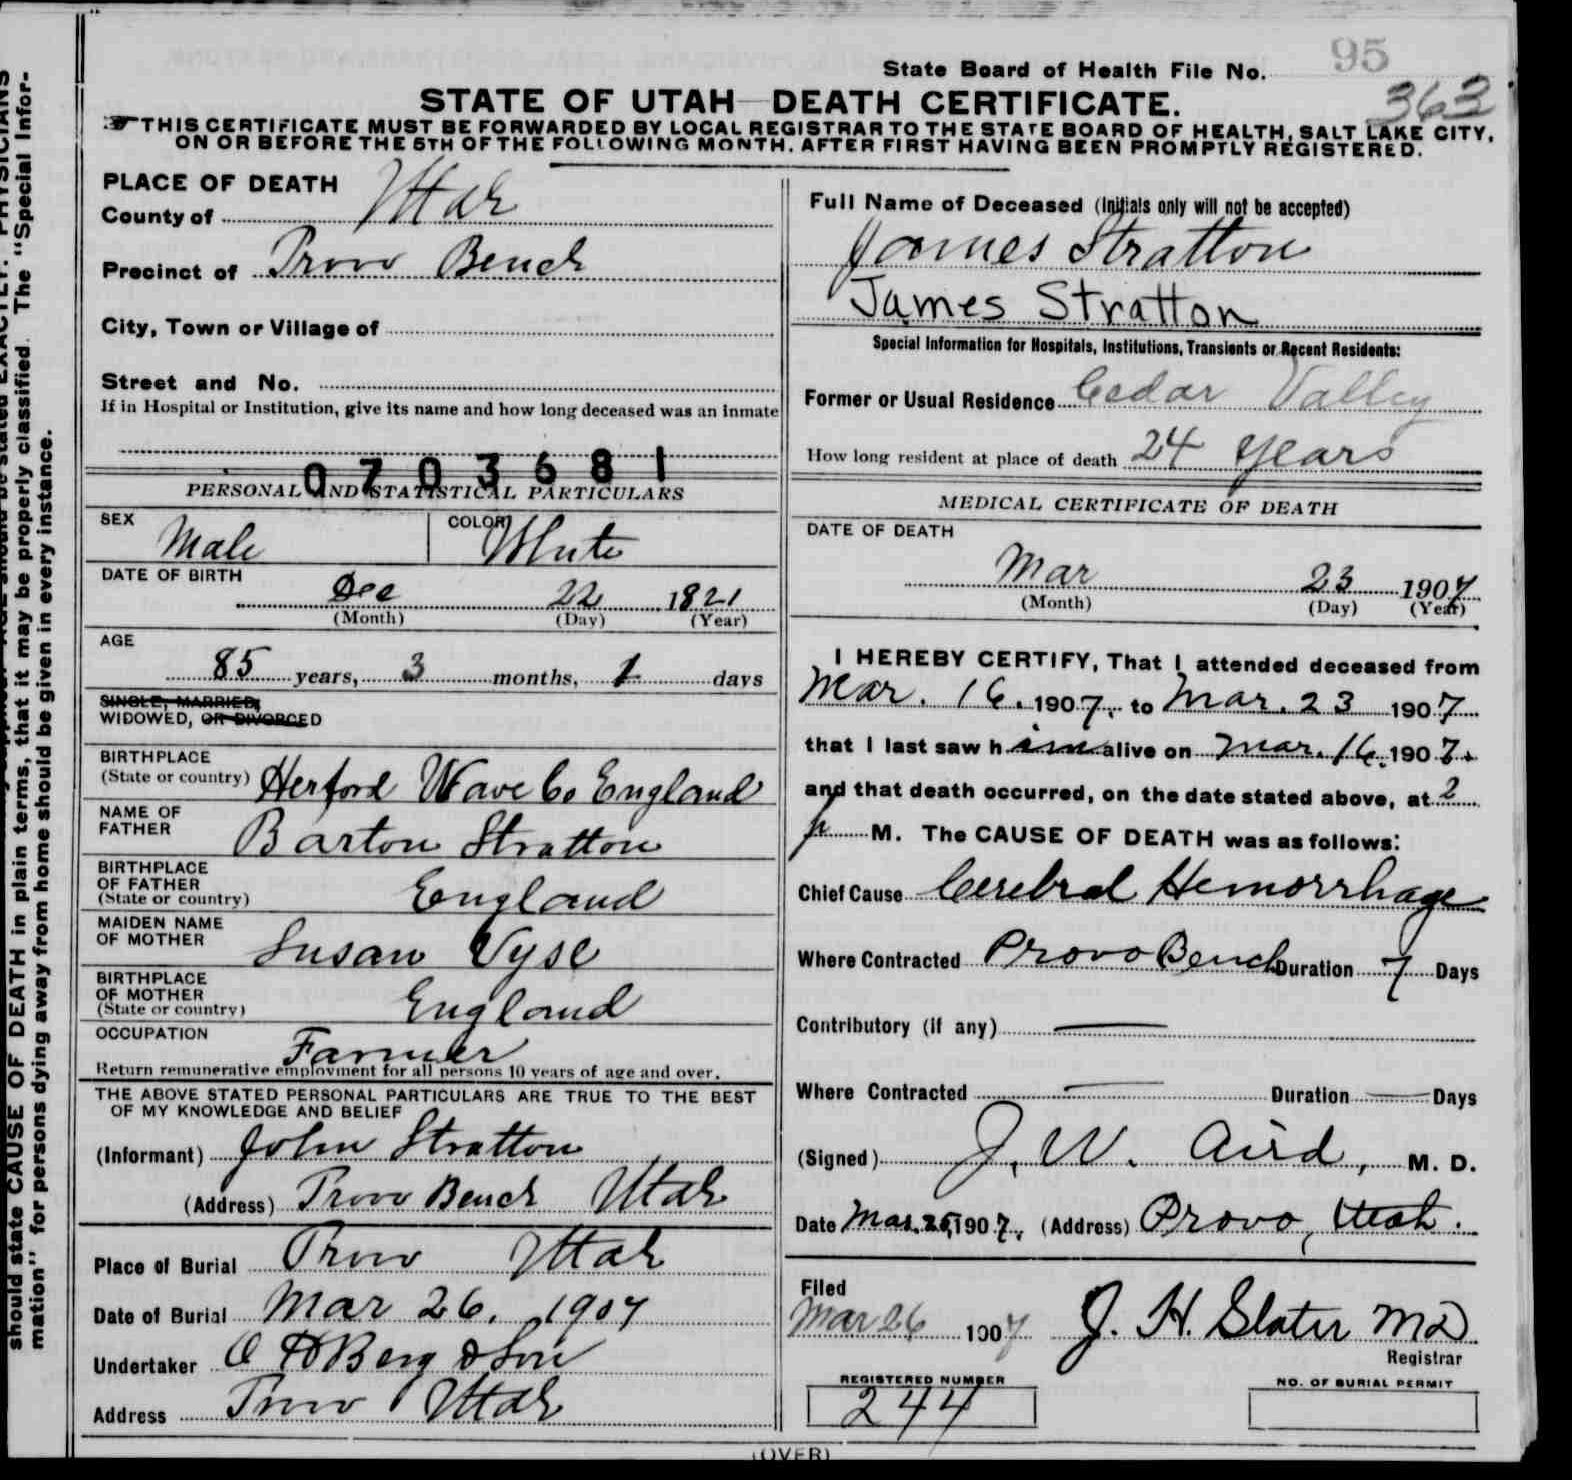 should state CAUSE OF DEATH in plain terms, that it may be properly classified. The "Special Infor-
mation" for persons dying away from home should be given in every instance.
95
State Board of Health File No.
363
STATE OF UTAH—DEATH CERTIFICATE.
THIS CERTIFICATE MUST BE FORWARDED BY LOCAL REGISTRAR TO THE STATE BOARD OF HEALTH, SALT LAKE CITY,
ON OR BEFORE THE 5TH OF THE FOLLOWING MONTH. AFTER FIRST HAVING BEEN PROMPTLY REGISTERED.
PLACE OF DEATH
County of Utah
Precinct of Provo Bench
City, Town or Village of
Street and No.
If in Hospital or Institution, give its name and how long deceased was an inmate
0703681
PERSONAL AND STATISTICAL PARTICULARS
SEX Male COLOR White
DATE OF BIRTH
Dec 22 1821
(Month) (Day) (Year)
AGE
85 years, 3 months, 1 days
SINGLE, MARRIED,
WIDOWED, OR DIVORCED
BIRTHPLACE
(State or country) Herford Wave Co England
NAME OF
FATHER Barton Stratton
BIRTHPLACE
OF FATHER
(State or country) England
MAIDEN NAME
OF MOTHER Susan Vyse
BIRTHPLACE
OF MOTHER
(State or country) England
OCCUPATION Farmer
Return remunerative employment for all persons 10 years of age and over.
THE ABOVE STATED PERSONAL PARTICULARS ARE TRUE TO THE BEST
OF MY KNOWLEDGE AND BELIEF
(Informant) John Stratton
(Address) Provo Bench Utah
Place of Burial Provo Utah
Date of Burial Mar 26, 1907
Undertaker O H Berg & Son
Address Provo Utah
Full Name of Deceased (Initials only will not be accepted)
James Stratton
James Stratton
Special Information for Hospitals, Institutions, Transients or Recent Residents:
Former or Usual Residence Cedar Valley
How long resident at place of death 24 years
MEDICAL CERTIFICATE OF DEATH
DATE OF DEATH
Mar 23 1907
(Month) (Day) (Year)
I HEREBY CERTIFY, That I attended deceased from
Mar. 16. 1907, to Mar. 23 1907
that I last saw him alive on Mar. 16. 1907.
and that death occurred, on the date stated above, at 2
p M. The CAUSE OF DEATH was as follows:
Chief Cause Cerebral Hemorrhage
Where Contracted Provo Bench Duration 7 Days
Contributory (if any) —
Where Contracted — Duration — Days
(Signed) J. W. Aird, M. D.
Date Mar. 25, 1907, (Address) Provo, Utah.
Filed
Mar 26 1907 J. H. Slater MD
Registrar
REGISTERED NUMBER
244
NO. OF BURIAL PERMIT
(OVER)